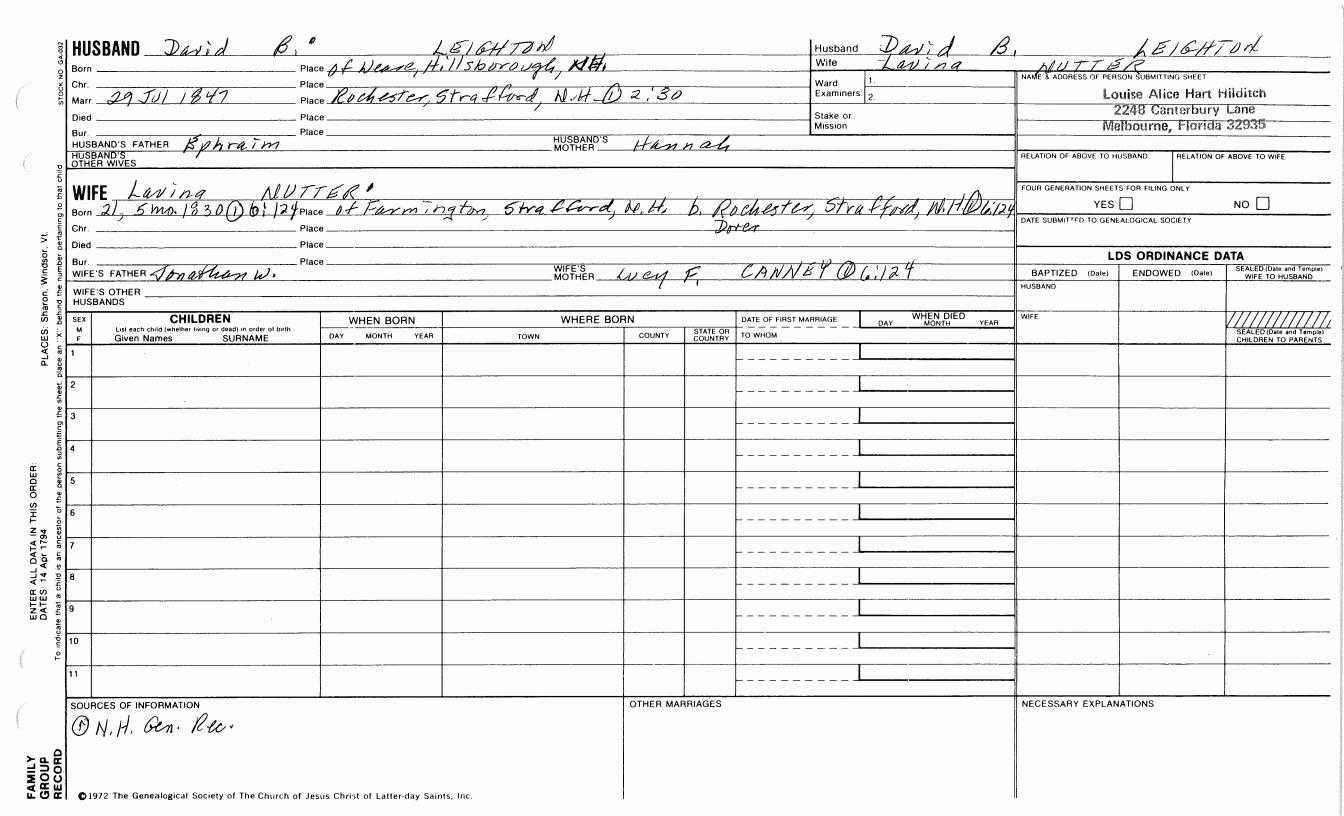 HUSBAND David B. LEIGHTON
Born Place of Weare, Hillsborough, N.H.
Chr. Place
Marr 29 Jul 1847 Place Rochester, Strafford, N.H. ① 2:30
Died Place
Bur. Place
HUSBAND'S FATHER Ephraim HUSBAND'S MOTHER Hannah
HUSBAND'S OTHER WIVES
Husband David B. LEIGHTON
Wife Lavina NUTTER
Ward Examiners: 1. 2.
Stake or Mission
NAME & ADDRESS OF PERSON SUBMITTING SHEET
Louise Alice Hart Hilditch
2248 Canterbury Lane
Melbourne, Florida 32935
RELATION OF ABOVE TO HUSBAND RELATION OF ABOVE TO WIFE
FOUR GENERATION SHEETS FOR FILING ONLY
YES NO
DATE SUBMITTED TO GENEALOGICAL SOCIETY
WIFE Lavina NUTTER
Born 21, 5 mo. 1830 ① 6:124 Place of Farmington, Strafford, N.H. b. Rochester, Strafford, N.H ① 6:124
Chr. Place Dover
Died Place
Bur. Place
WIFE'S FATHER Jonathan W. WIFE'S MOTHER Lucy F. CANNEY ① 6:124
WIFE'S OTHER HUSBANDS
LDS ORDINANCE DATA
BAPTIZED (Date) ENDOWED (Date) SEALED (Date and Temple) WIFE TO HUSBAND
HUSBAND
WIFE
SEALED (Date and Temple) CHILDREN TO PARENTS
SEX M F
CHILDREN
List each child (whether living or dead) in order of birth
Given Names SURNAME
WHEN BORN
DAY MONTH YEAR
WHERE BORN
TOWN COUNTY STATE OR COUNTRY
DATE OF FIRST MARRIAGE
TO WHOM
WHEN DIED
DAY MONTH YEAR
1
2
3
4
5
6
7
8
9
10
11
SOURCES OF INFORMATION
① N.H. Gen. Rec.
OTHER MARRIAGES
NECESSARY EXPLANATIONS
©1972 The Genealogical Society of The Church of Jesus Christ of Latter-day Saints, Inc.
STOCK NO. GA-002
To indicate that a child is an ancestor of the person submitting the sheet, place an "X" behind the number pertaining to that child
PLACES: Sharon, Windsor, Vt.
ENTER ALL DATA IN THIS ORDER:
DATES: 14 Apr 1794
FAMILY
GROUP
RECORD